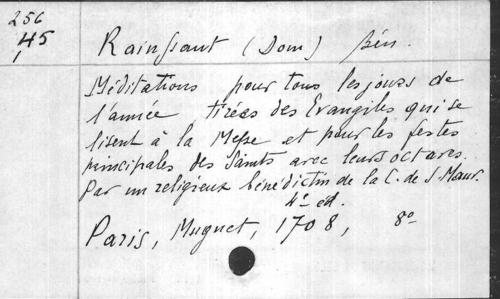 256
45
1
Rainssant (Dom) Bén.
Méditations pour tous les jours de
l'année, tirées des Evangiles qui se
lisent à la Messe et pour les festes
principales des Saints avec leurs octaves.
Par un religieux bénédictin de la C. de S. Maur.
4e éd.
Paris, Muguet, 1708, 8o